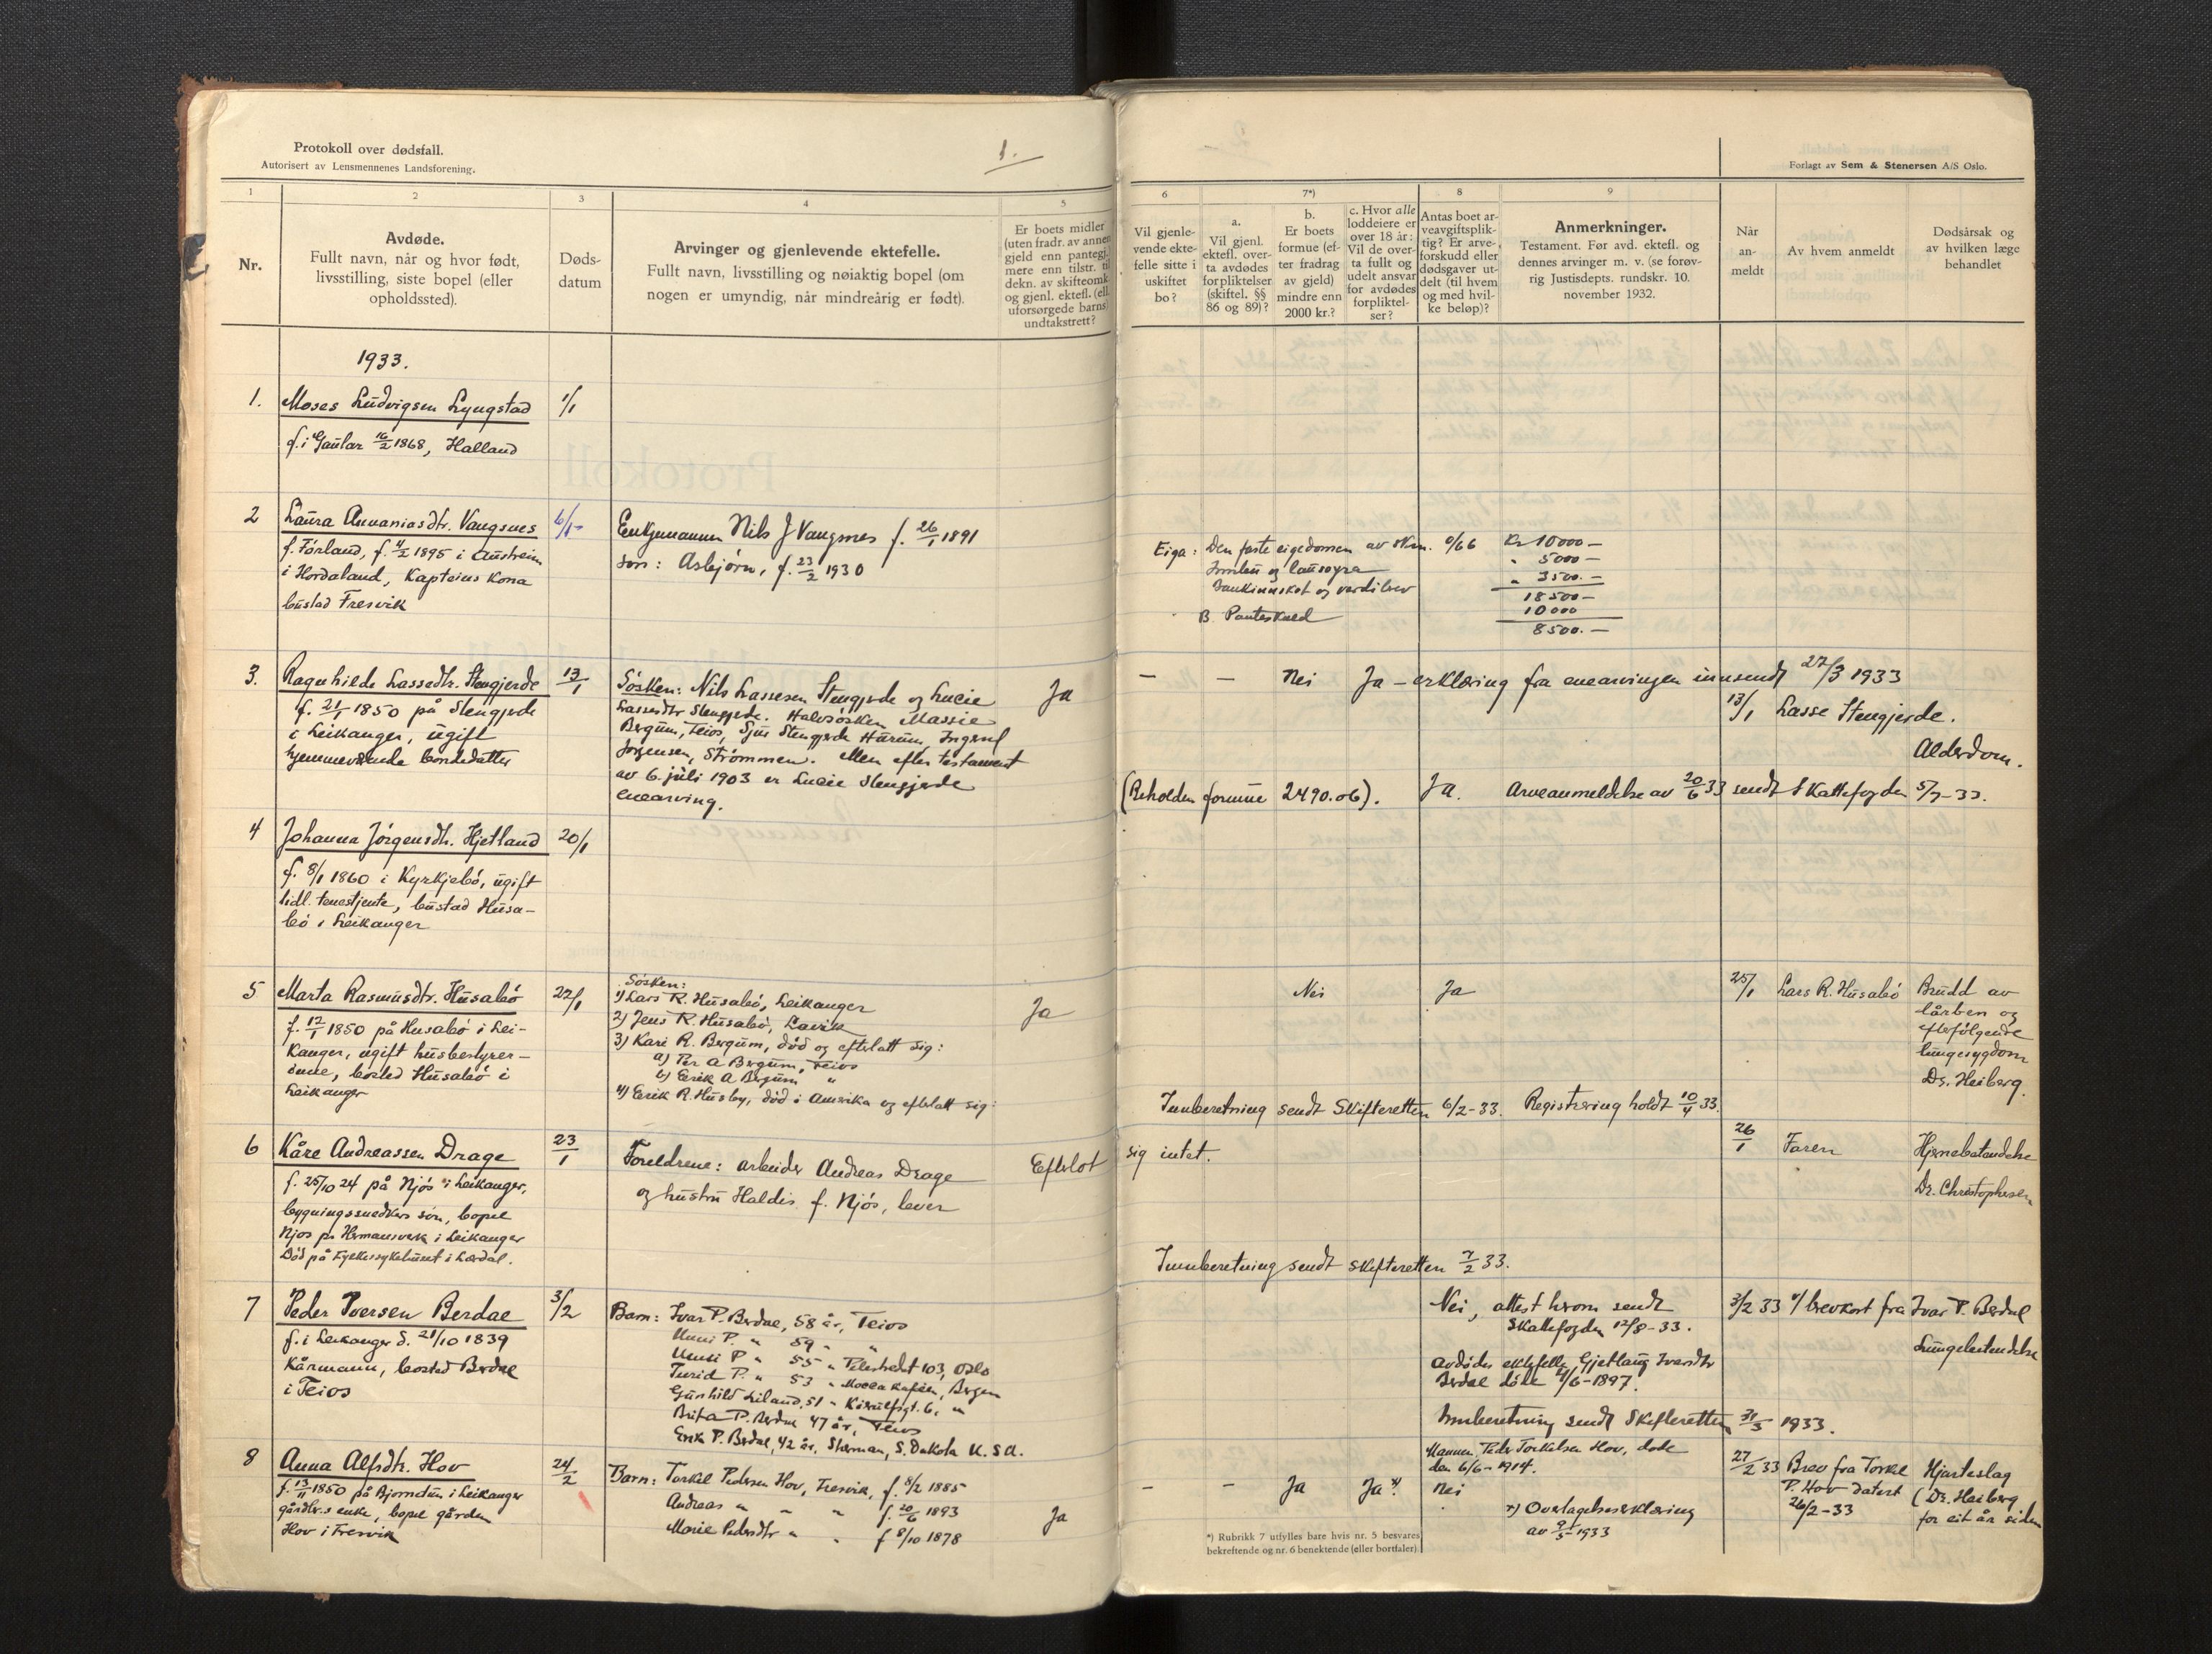 Protokoll over dødsfall.
Autorisert av Lensmennenes Landsforening.
1.
1
2
3
4
5
Nr.
Avdøde.
Fullt navn, når og hvor født,
livsstilling, siste bopel (eller
opholdssted).
Døds-
datum
Arvinger og gjenlevende ektefelle.
Fullt navn, livsstilling og nøiaktig bopel (om
nogen er umyndig, når mindreårig er født).
Er boets midler
(uten fradr. av annen
gjeld enn pantegj.)
mere enn tilstr. til
dekn. av skifteomk.
og gjenl. ektefl. (ell.
uforsørgede barns)
undtakstrett?
1933.
1.
Moses Ludvigsen Lyngstad
1/1
f. i Gaular 16/2 1868, Halland
2
Laura Annaniasdtr. Vangsnes
6/1
f. Førland, f. 4/2 1895 i Austrheim
i Hordaland, Kapteins kona
bustad Fresvik
Enkjemannen Nils J Vangsnes f. 26/1 1891
son: Asbjørn, f. 23/2 1930
3.
Ragnhilde Lassedtr. Stengjerde
13/1
f. 21/1 1850 på Stengjerde
i Leikanger, ugift
hjemmeværende bondedatter
Søsken: Nils Lassesen Stengjerde og Lucie
Lassesdtr Stengjerde. Halvsøsken Massie
Bergum, Teios, Sjur Stengjerde Hurum, Ingerid
Jørgensen, Strømmen. Men efter testament
av 6. juli 1903 er Lucie Stengjerde
enearving.
Ja
4
Johanna Jørgensdtr. Hjetland
20/1
f. 8/1 1860 i Kyrkjebø, ugift
tidl. tenestjente, bustad Husa-
bø i Leikanger
5
Marta Rasmusdtr. Husabø
22/1
f. 12/1 1850 på Husabø i Lei-
kanger, ugift husbestyrer-
inne, bosted Husabø i
Leikanger
Søsken:
1) Lars R. Husabø, Leikanger
2) Jens R. Husabø, Lavik
3) Kari R. Bergum, død og efterlatt sig:
a) Per A Bergum, Teios
b) Eirik A Bergum "
4) Eerik R. Husby, død i Amerika og efterlatt sig:
Ja
6
Kåre Andreassen Drage
23/1
f. 25/10 24 på Njøs i Leikanger,
bygningssnedkers søn, bopel
Njøs pr. Hermansverk i Leikanger
Død på Fylkessykehuset i Lærdal.
Foreldrene: arbeider Andreas Drage
og hustru Haldis f. Njøs, lever
Efterlot
7
Peder Iversen Berdae
3/2
f. i Leikanger d. 21/10 1839
Kårmann, bosted Berdae
i Teios
Barn: Ivar P. Berdae, 58 år, Teios
Unni P. " 59 " "
Unni P " 55 " 103, Oslo
Turid P. " 53 " Mocca kaféen, Bergen
Gunhild Leiland, 51 " 6, "
Brita P. Berdae 47 år, Teios
Erik P. Berdal, 42 år, Sherman, S. Dakota U.S.A.
8
Anna Alfsdtr. Hov
24/2
f. 13/11 1850 på Bjørnetun i Leikanger
gårdbr.s enke, bopel gården
Hov i Fresvik
Barn: Torkel Pedersen Hov, Fresvik, f. 8/2 1885
Andreas " " " f. 20/6 1893
Marie Pedersdtr " " f 8/10 1878
Ja
Forlagt av Sem & Stenersen A/S Oslo.
6
7*)
8
9
Vil gjenle-
vende ekte-
felle sitte i
uskiftet
bo?
a.
Vil gjenl.
ektefl. over-
ta avdødes
forpliktelser
(skiftel. §§
86 og 89)?
b.
Er boets
formue (ef-
ter fradrag
av gjeld)
mindre enn
2000 kr.?
c. Hvor alle
loddeiere er
over 18 år:
Vil de over-
ta fullt og
udelt ansvar
for avdødes
forpliktel-
ser?
Antas boet ar-
veavgiftsplik-
tig? Er arve-
forskudd eller
dødsgaver ut-
delt (til hvem
og med hvil-
ke beløp)?
Anmerkninger.
Testament. Før avd. ektefl. og
dennes arvinger m. v. (se forøv-
rig Justisdepts. rundskr. 10.
november 1932.
Når
an-
meldt
Av hvem anmeldt
Dødsårsak og
av hvilken læge
behandlet
Eiga: Den faste eigedomen av skm. 0/66 Kr 10000 –
Innbu og lausøyra " 5000 –
Bankinnskot og verdibrev " 3500. –
18500 –
B. Panteskuld 10000
8500. –
– – Nei Ja – erklæring fra enearvingen innsendt 27/3 1933
13/1 Lasse Stengjerde.
Alderdom.
(Beholden formue 2490.06). Ja. Arveanmeldelse av 20/6 33 sendt Skattefogden 5/7-33.
Nei
Ja
25/1
Lars R. Husabø
Brudd av
lårben og
efterfølgende
lungesygdom
Dr. Heiberg.
Innberetning sendt Skifteretten 6/2-33. Registrering holdt 10/4 33.
sig intet.
26/1
Faren
Hjernebetendelse
Dr. Christophersen
Innberetning sendt skifteretten 7/2 33.
Nei, attest herom sendt
Skattefogden 12/8-33.
3/2 33 v/ brevkort fra Ivar P. Berdal
Lungebetendelse
Avdødes ektefelle, Gjetlaug Ivarsdtr
Berdal døde 4/6-1897.
Innberetning sendt Skifteretten 31/3 1933.
Mannen, Peder Torkelsen Hov, døde
den 6/6-1914.
– – Ja Ja x). Nei
x) Overtagelseserklæring
av 9/5 1933
27/2 33
Brev fra Torkel
P. Hov datert
26/2-33
Hjarteslag
(Dr. Heiberg
for eit år siden
*) Rubrikk 7 utfylles bare hvis nr. 5 besvares
bekreftende og nr. 6 benektende (eller bortfaler).